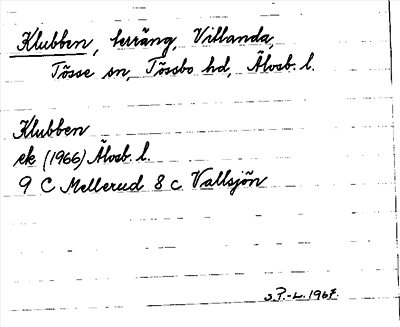 Klubben, terräng, Villanda,
Tösse sn, Tössbo hd, Älvsb. l.
Klubben
ek (1966) Älvsb. l.
9 C Mellerud 8 c Vallsjön
S.P.-L. 1967.